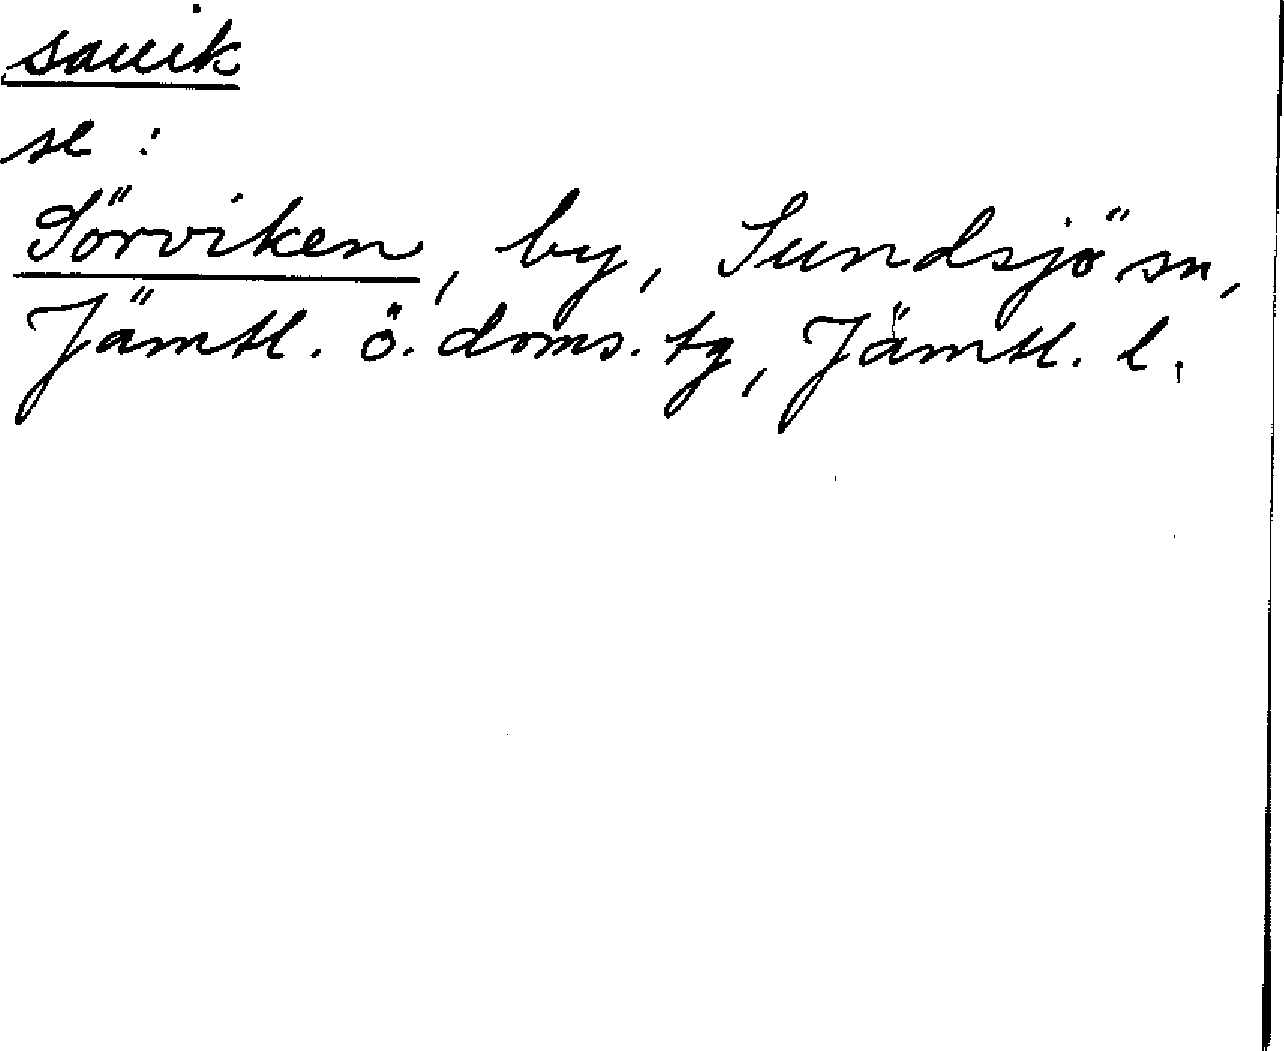 sauik
se :
Sörviken, by, Sundsjö sn,
Jämtl. ö. doms. tg, Jämtl. l.